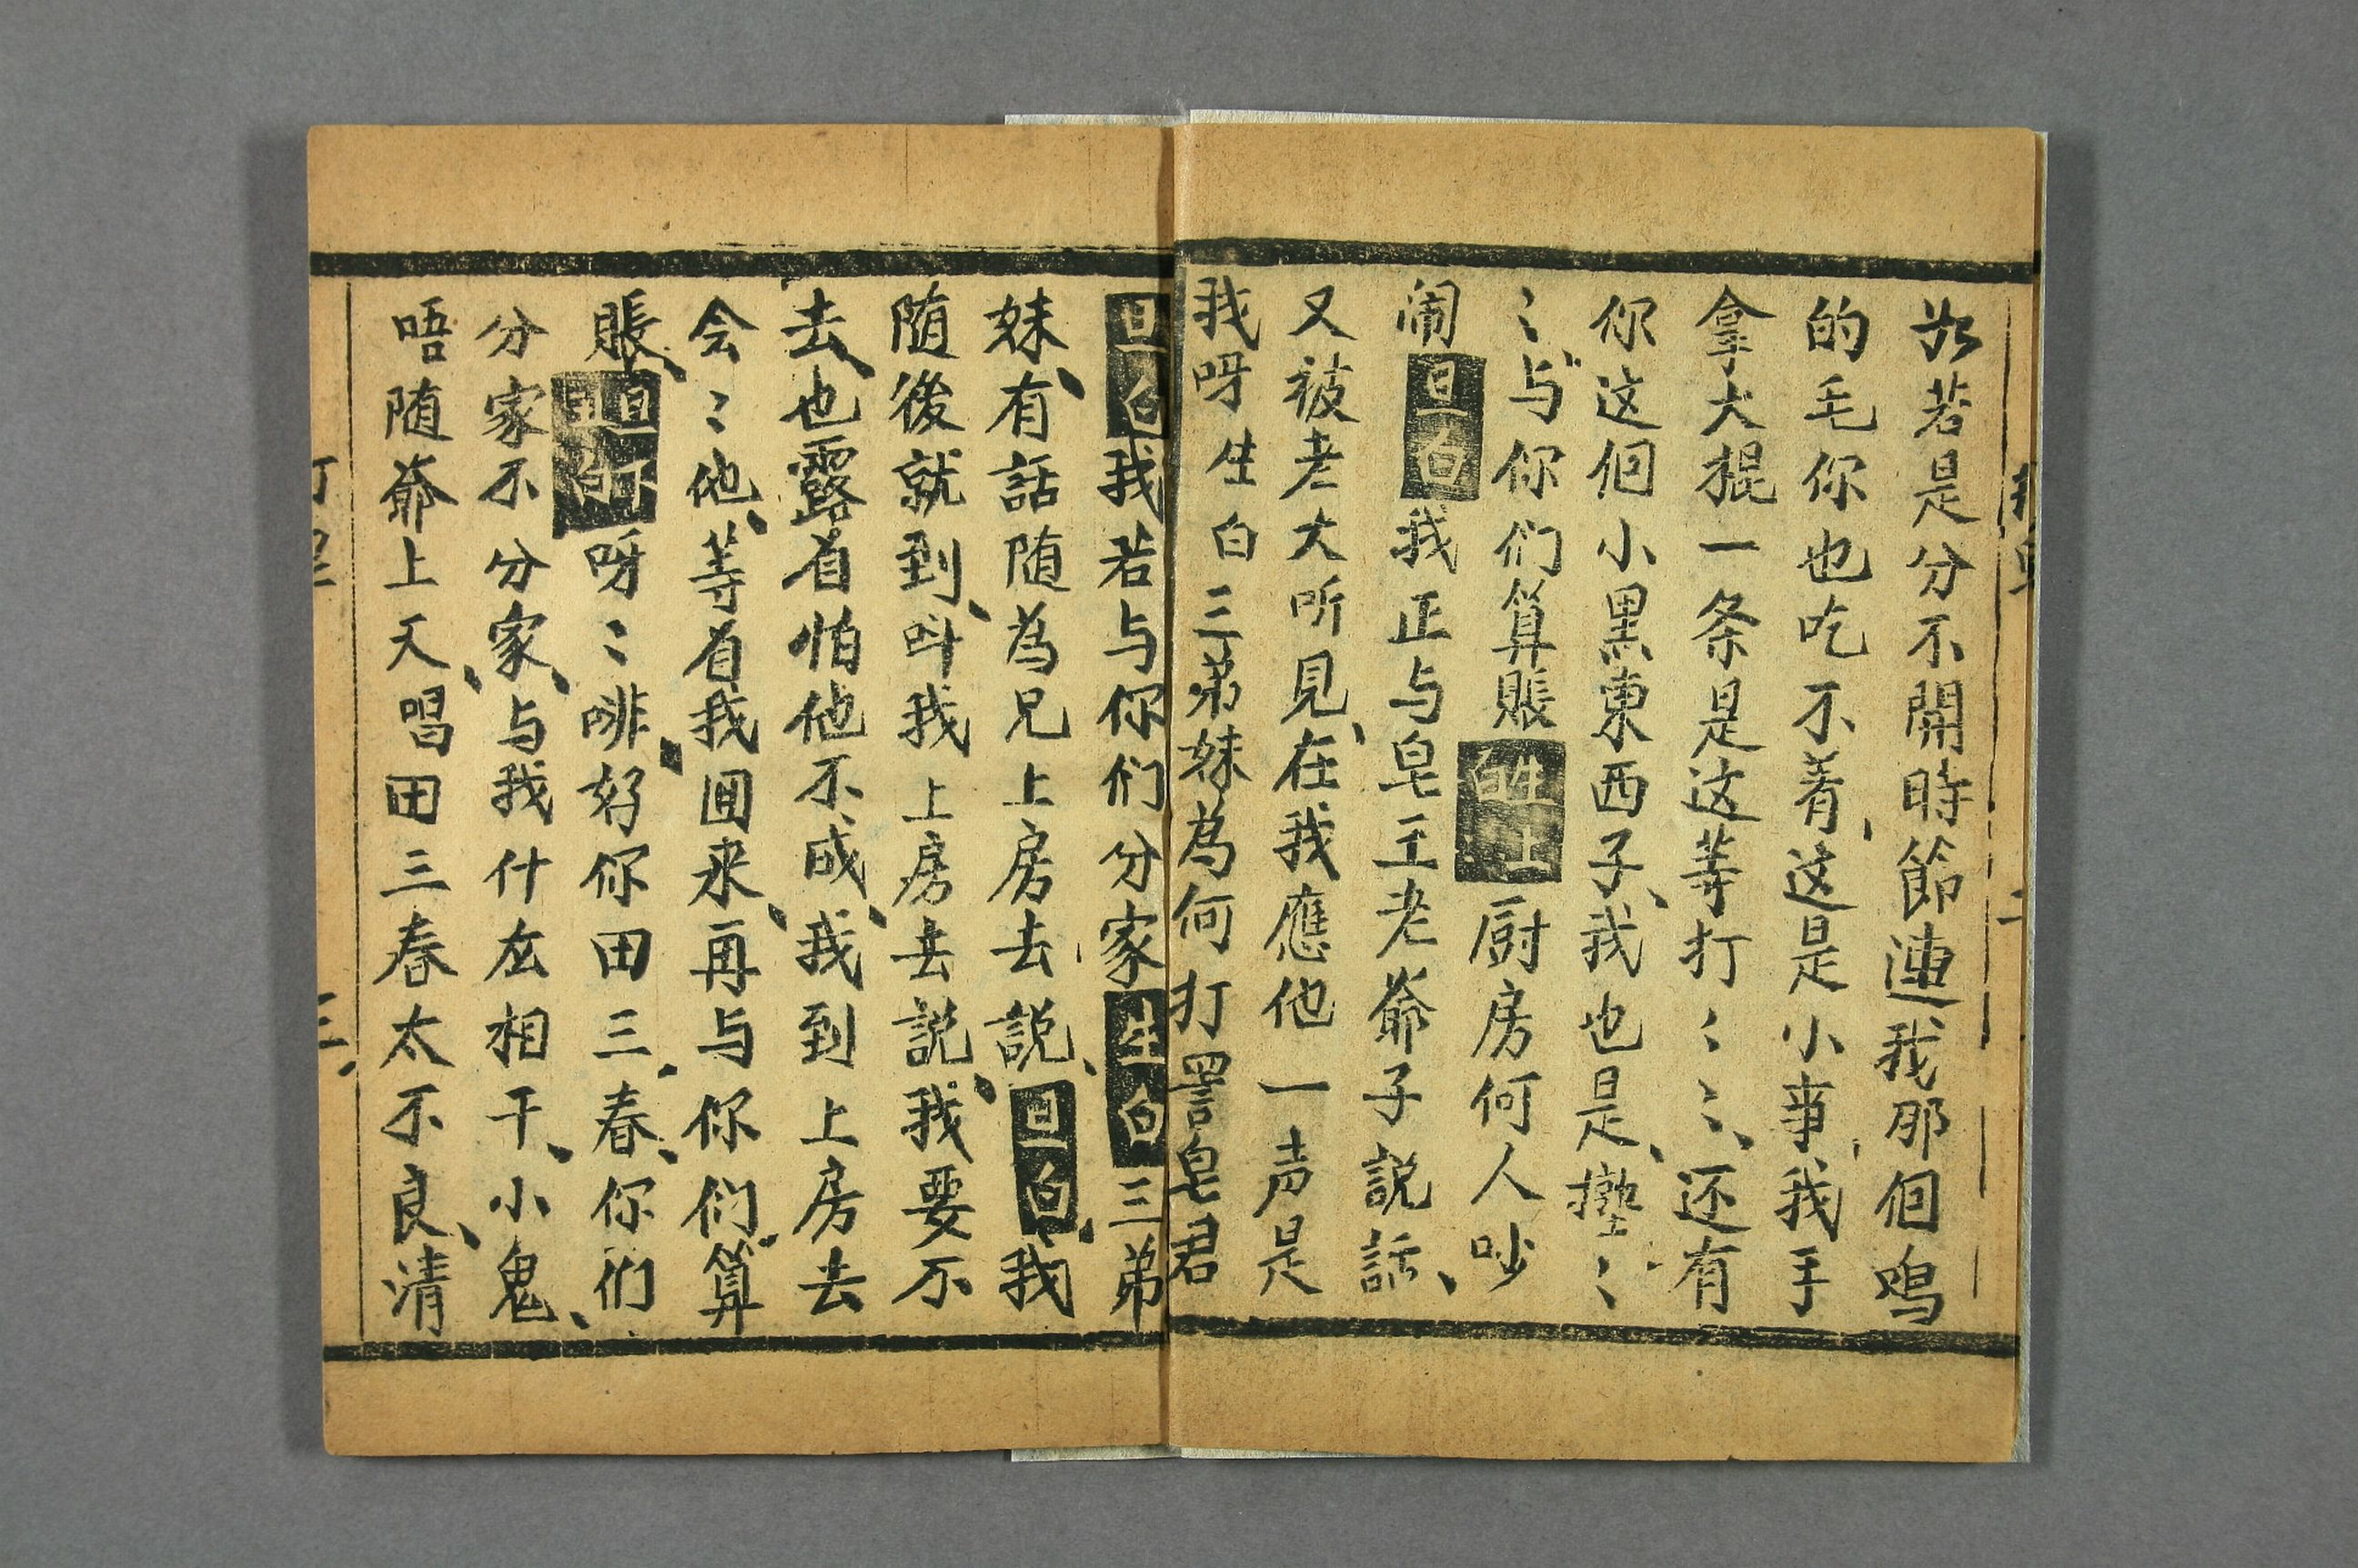 若是分不開時節連我那個鳴
的毛你也吃不着这是小事我手
拿大棍一条是这等打〻〻〻还有
你这個小黑東西子我也是〻
〻与你们算賬生上白厨房何人吵
闹旦白我正与皂王老爺子説話
又被老大听見在我應他一声是
我呀生白三弟妹為何打詈皂君
旦白我若与你们分家生白三弟
妹有話随為兄上房去説旦白我
随後就到呌我上房去説我要不
去也露着怕他不成我到上房去
会〻他等着我囬来再与你们算
賬旦打旦白呀〻啡好你田三春你们
分家不分家与我什庅相干小鬼
唔随爺上天唱田三春太不良清
打皂
三
二